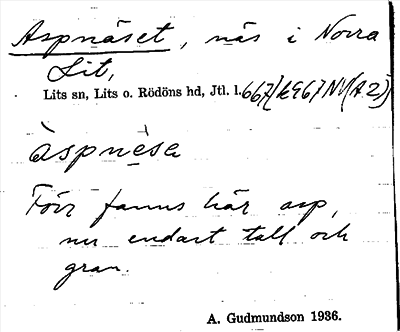 Aspnäset, näs i Norra
Lit,
Lits sn, Lits o. Rödöns hd, Jtl. l.
àspnèsa
Förr fanns här asp,
nu endast tall och
gran.
A. Gudmundson 1936.